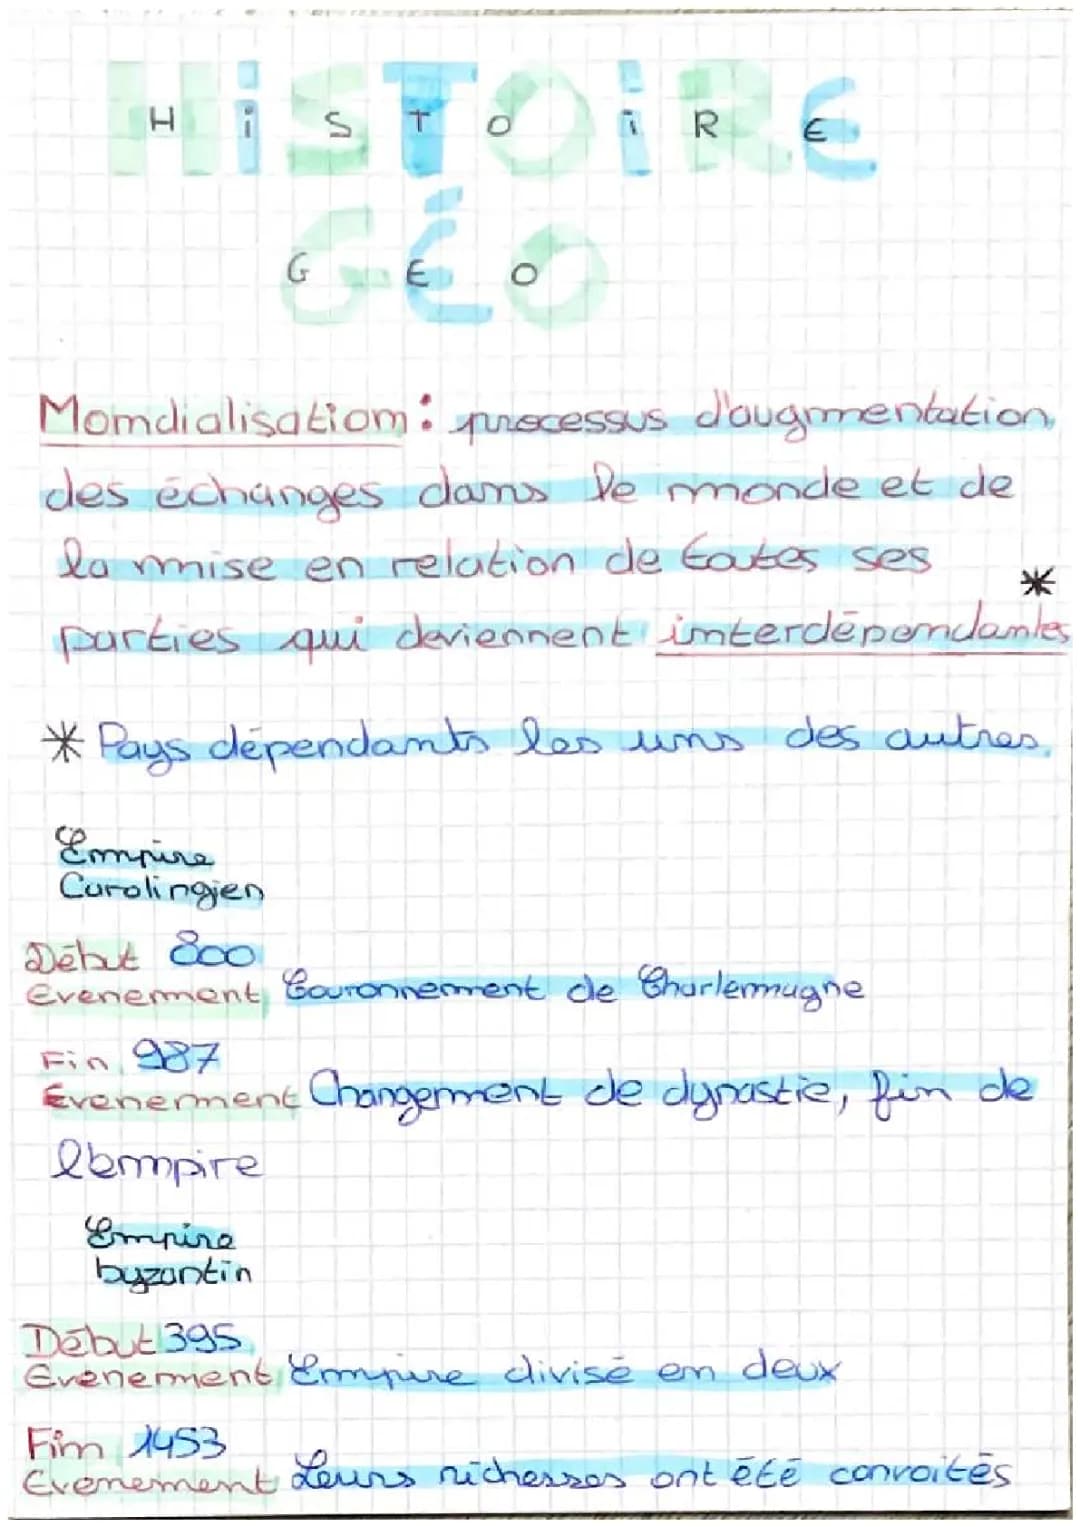 HiSTOiRE
GÉO
Mondialisation : processus d'augmentation
des échanges dans le monde et de
la mise en relation de toutes ses
parties qui deviennent interdépendantes *
* Pays dépendants les uns des autres.
Empire
Carolingien
Début 800
Évenement Couronnement de Charlemagne
Fin 987
Évenement Changement de dynastie, fin de
l'empire
Empire
byzantin
Début 395
Évenement Empire divisé en deux
Fin 1453
Évenement Leurs richesses ont été convoités